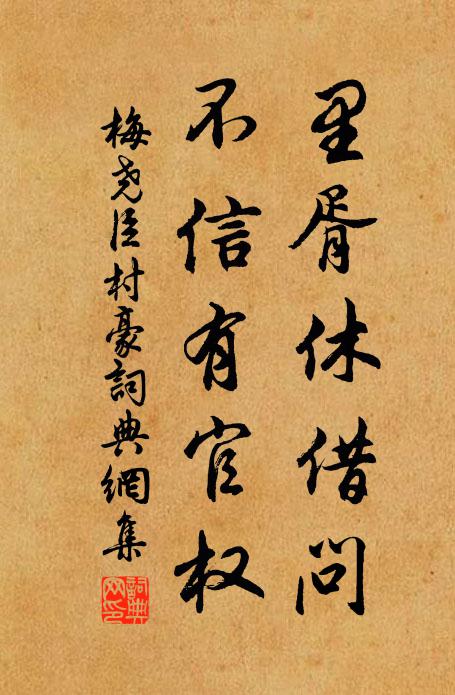 里胥休借问
不信有官权
梅尧臣村豪詞典網集
詞典网印